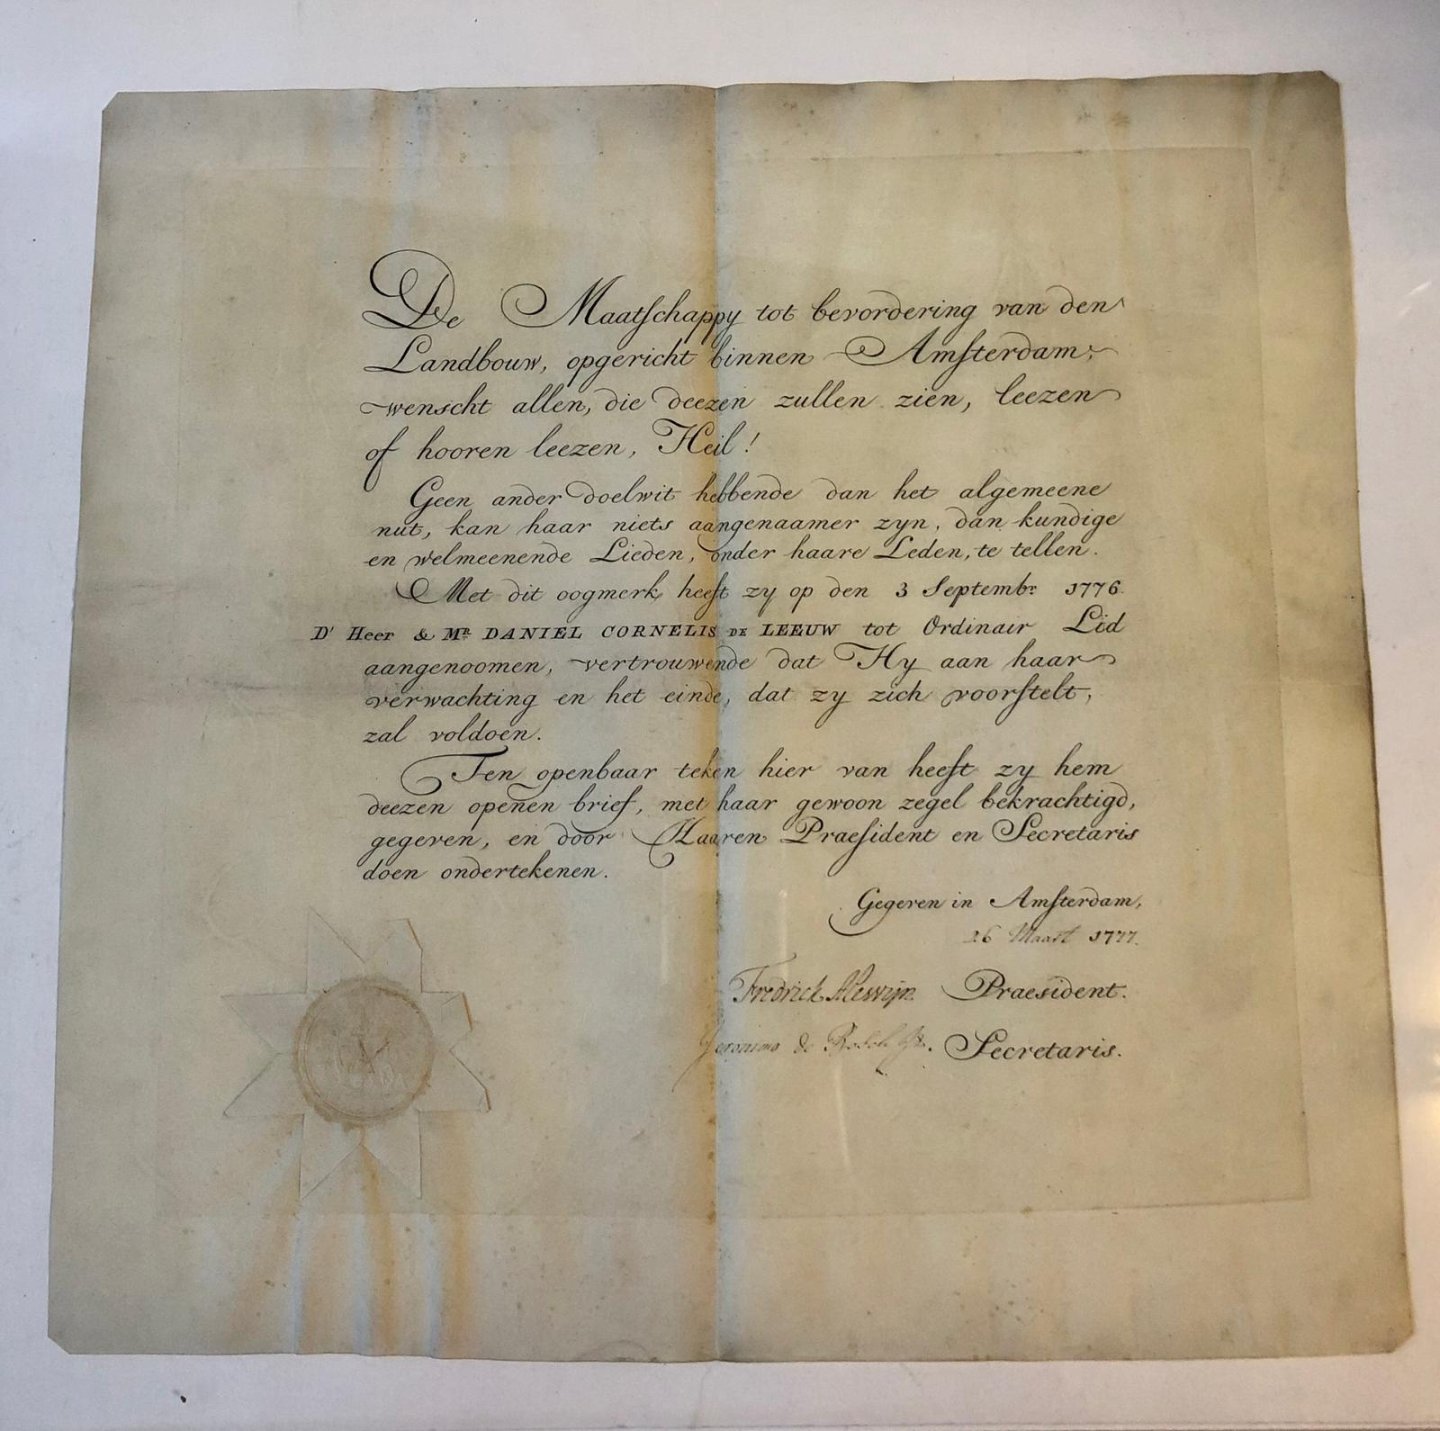 De Maatſchappy tot bevordering van den
Landbouw, opgericht binnen Amſterdam,
wenscht allen, die deezen zullen zien, leezen
of hooren leezen, Heil!
Geen ander doelwit hebbende dan het algemeene
nut, kan haar niets aangenaamer zyn, dan kundige
en welmeenende Lieden, onder haare Leden, te tellen.
Met dit oogmerk heeft zy op den 3 Septembr. 1776.
Dr Heer & Mr. DANIEL CORNELIS DE LEEUW tot Ordinair Lid
aangenoomen, vertrouwende dat Hy aan haar
verwachting en het einde, dat zy zich voorſtelt,
zal voldoen.
Ten openbaar teken hier van heeft zy hem
deezen openen brief, met haar gewoon zegel bekrachtigd,
gegeven, en door Haaren Praeſident en Secretaris
doen ondertekenen.
Gegeven in Amſterdam,
26 Maart 1777.
Fredrick Alewijn Praesident.
Jeronimo de Bosch Secretaris.